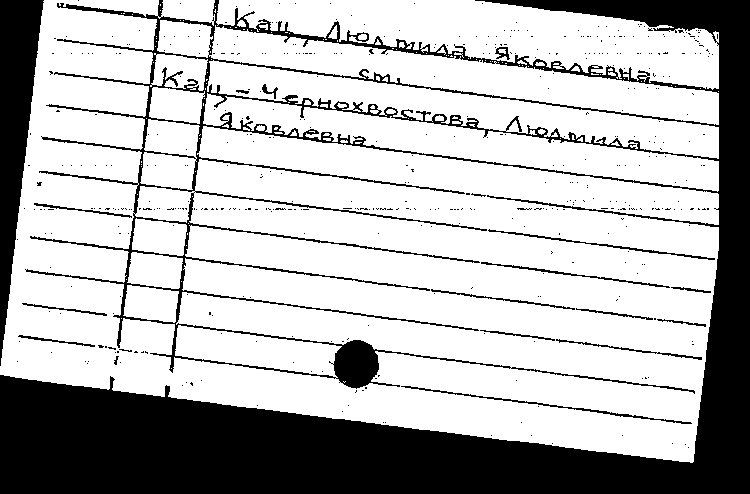 Кац, Людмила Яковлевна
см.
Кац-Чернохвостова, Людмила
Яковлевна.